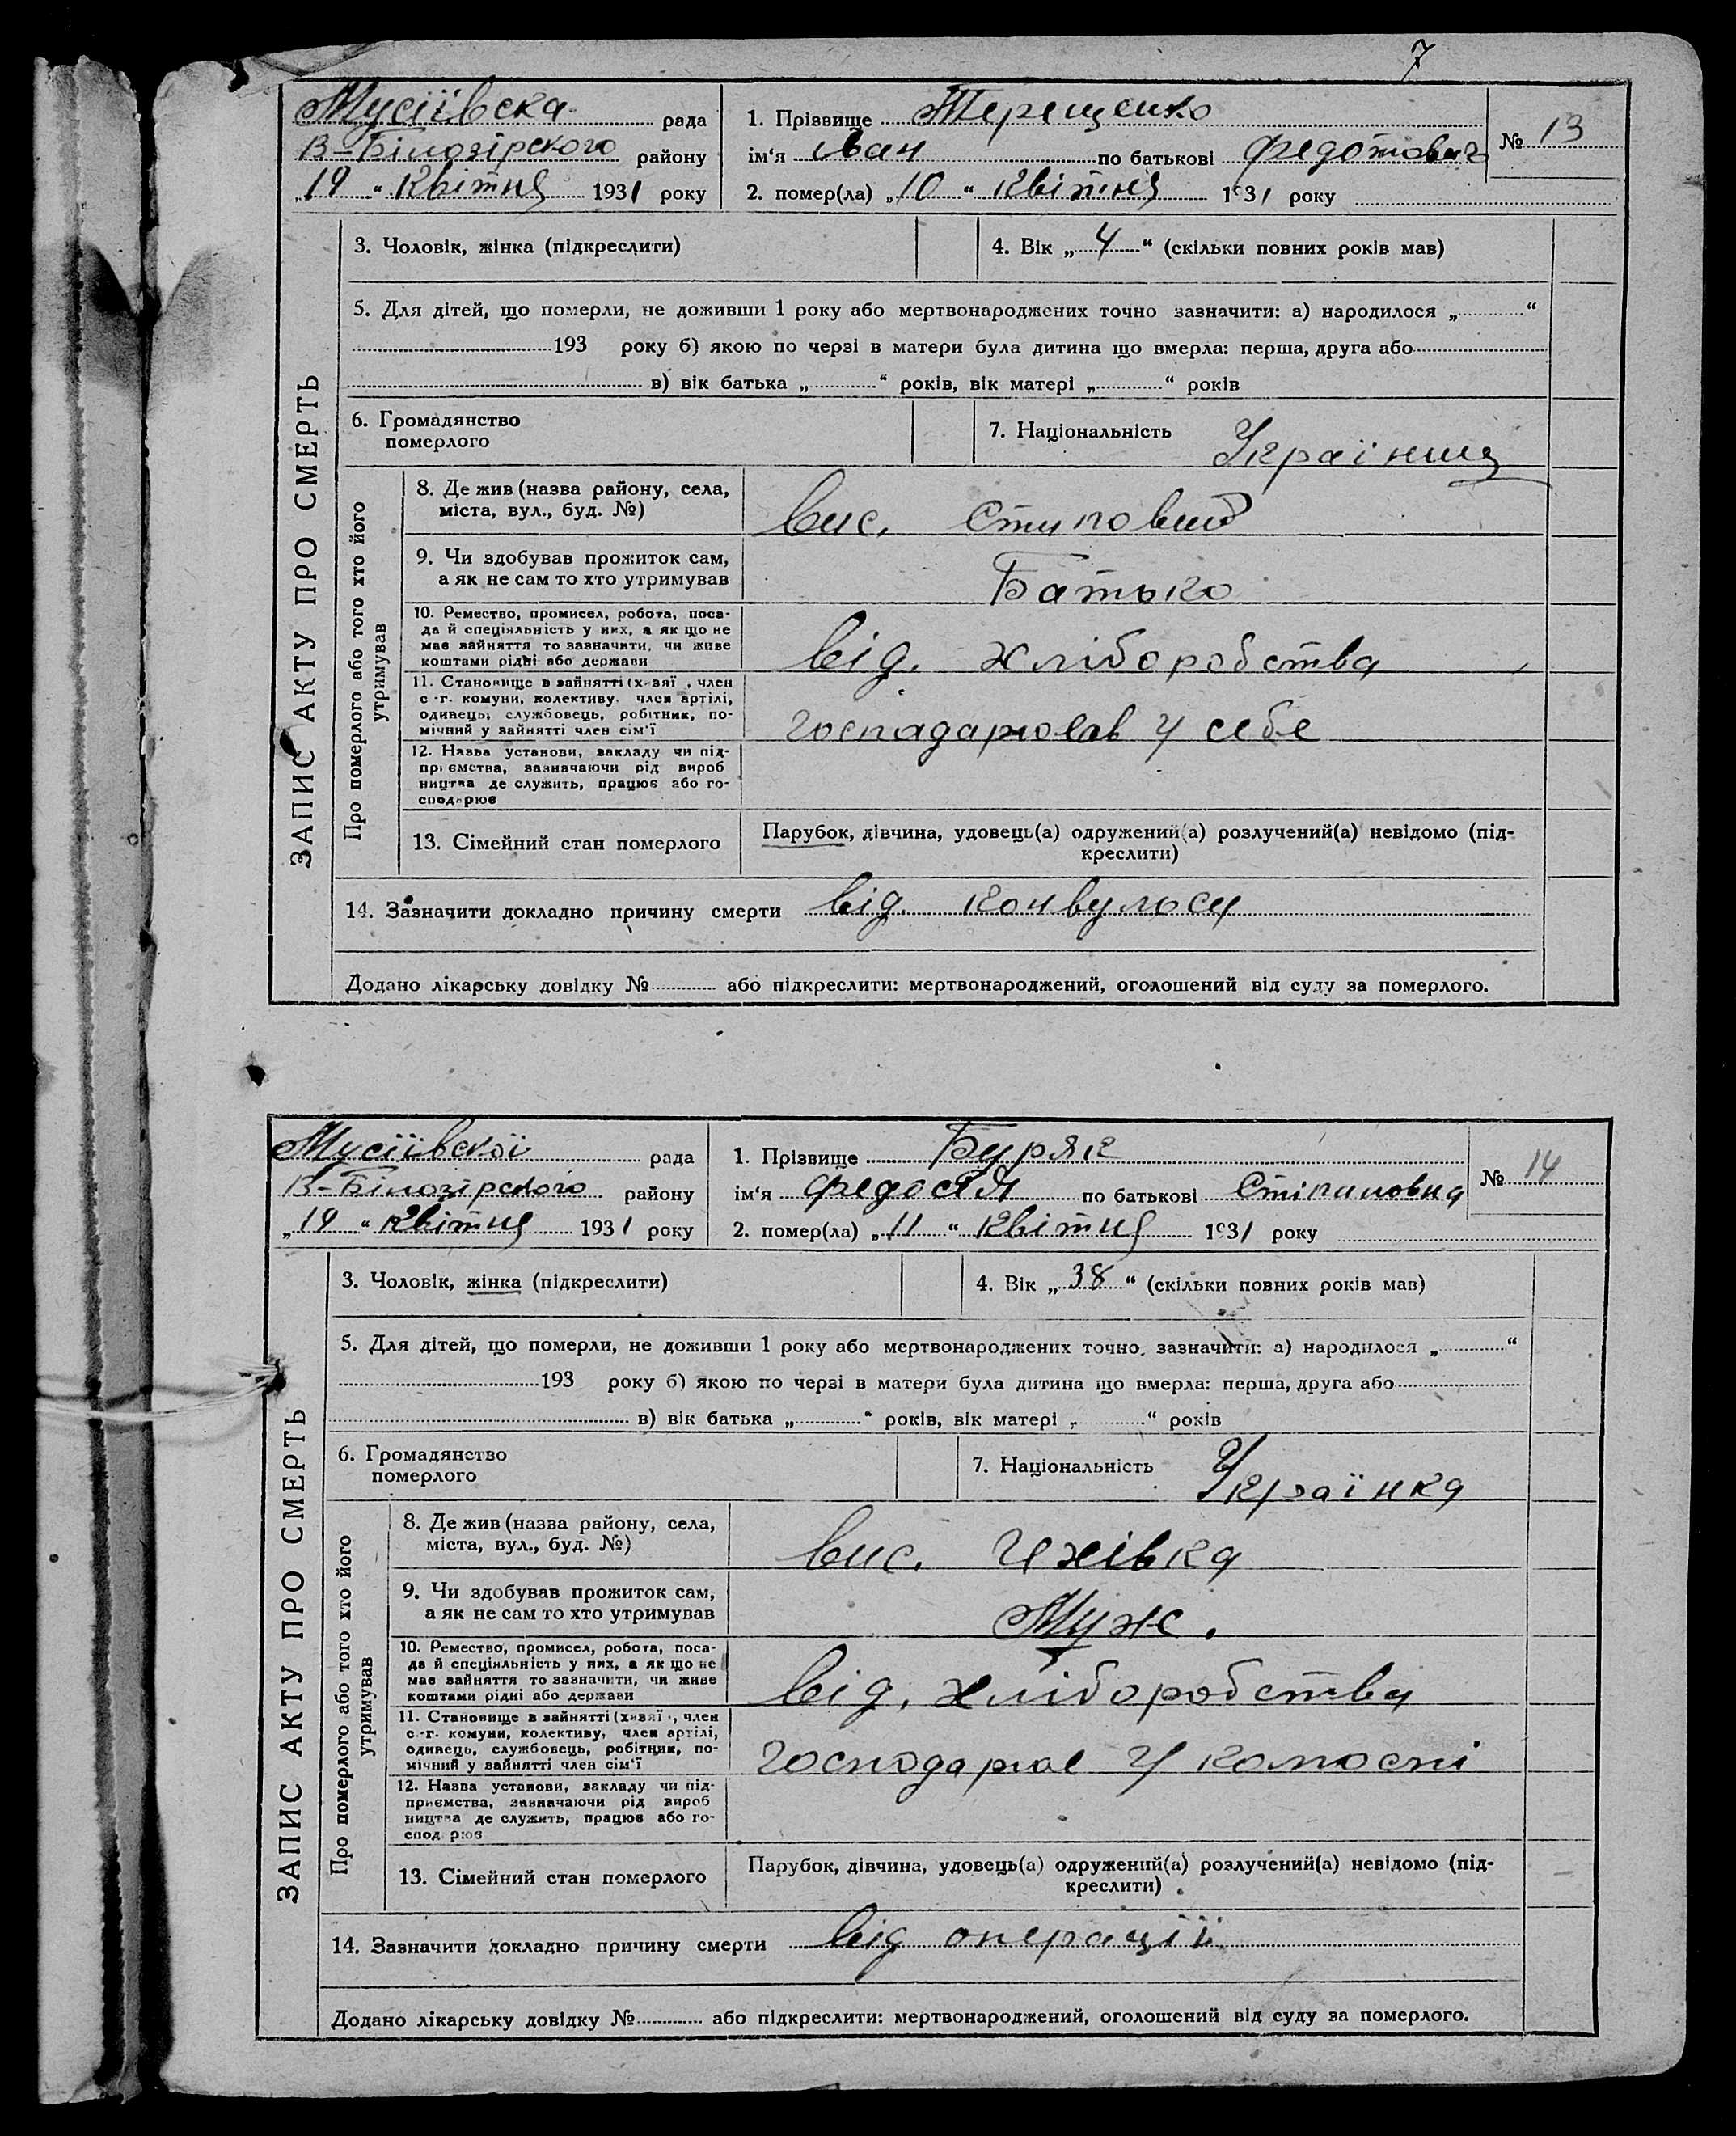 7
Мусіївска рада
В-Білозірского району
„19“ квітня 1931 року
1. Прізвище Терещенко
ім'я Іван по батькові Федотович
2. помер(ла) „10“ квітня 1931 року
№ 13
ЗАПИС АКТУ ПРО СМЕРТЬ
3. Чоловік, жінка (підкреслити)
4. Вік „4“ (скільки повних років мав)
5. Для дітей, що померли, не доживши 1 року або мертвонароджених точно зазначити: а) народилося „ “
193 року б) якою по черзі в матери була дитина що вмерла: перша, друга або
в) вік батька „ “ років, вік матері „ “ років
6. Громадянство
померлого
7. Національність Українць
Про померлого або того хто його
утримував
8. Де жив (назва району, села,
міста, вул., буд. №)
вис.
9. Чи здобував прожиток сам,
а як не сам то хто утримував
Батько
10. Ремество, промисел, робота, поса-
да й спеціяльність у них, а як що не
має зайняття то зазначити, чи живе
коштами рідні або держави
від. хліборобства
11. Становище в зайнятті (хазяї , член
с-г. комуни, колективу, член артілі,
одинець, службовець, робітник, по-
мічний у зайнятті член сім'ї
госпадарював у себе
12. Назва установи, закладу чи під-
приємства, зазначаючи рід вироб
ництва де служить, працює або го-
сподарює
13. Сімейний стан померлого
Парубок, дівчина, удовець(а) одружений(а) розлучений(а) невідомо (під-
креслити)
14. Зазначити докладно причину смерти від. конвулосу
Додано лікарську довідку № або підкреслити: мертвонароджений, оголошений від суду за померлого.
Мусіївскої рада
В-Білозірского району
„19“ квітня 1931 року
1. Прізвище Буряк
ім'я Федосія по батькові Стіпановна
2. помер(ла) „11“ квітня 1931 року
№ 14
ЗАПИС АКТУ ПРО СМЕРТЬ
3. Чоловік, жінка (підкреслити)
4. Вік „38“ (скільки повних років мав)
5. Для дітей, що померли, не доживши 1 року або мертвонароджених точно, зазначити: а) народилося „ “
193 року б) якою по черзі в матери була дитина що вмерла: перша, друга або
в) вік батька „ “ років, вік матері „ “ років
6. Громадянство
померлого
7. Національність Українка
Про померлого або того хто його
утримував
8. Де жив (назва району, села,
міста, вул., буд. №)
вис.
9. Чи здобував прожиток сам,
а як не сам то хто утримував
Муж.
10. Ремество, промисел, робота, поса-
да й спеціяльність у них, а як що не
має зайняття то зазначити, чи живе
коштами рідні або держави
від. хліборобства
11. Становище в зайнятті (хазяї , член
с-г. комуни, колективу, член артілі,
одинець, службовець, робітник, по-
мічний у зайнятті член сім'ї
господарює у колоспі
12. Назва установи, закладу чи під-
приємства, зазначаючи рід вироб
ництва де служить, працює або го-
сподарює
13. Сімейний стан померлого
Парубок, дівчина, удовець(а) одружений(а) розлучений(а) невідомо (під-
креслити)
14. Зазначити докладно причину смерти від операції
Додано лікарську довідку № або підкреслити: мертвонароджений, оголошений від суду за померлого.